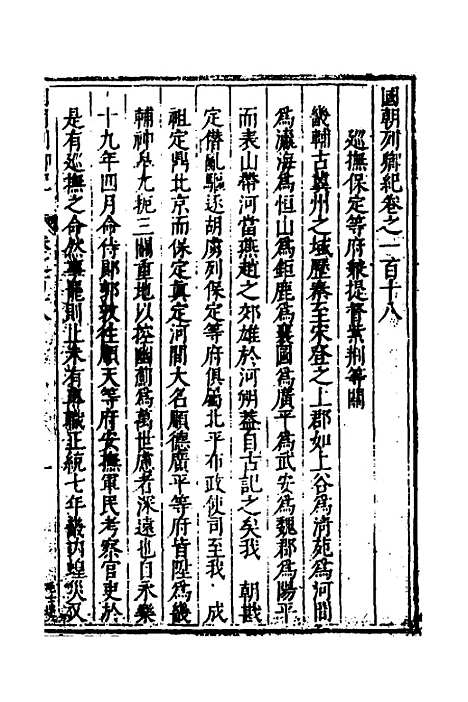 國朝列卿紀卷之一百十八
巡撫保定等府兼提督紫荆等關
畿輔古冀州之域歷秦至宋登之上郡如上谷爲清苑爲河間
爲瀛海爲恒山爲鉅鹿爲襄國爲廣平爲武安爲魏郡爲陽平
而表山帶河當燕趙之郊雄於河朔葢自古記之矣我 朝戡
定僭亂驅逐胡虜列保定等府俱屬北平布政使司至我 成
祖定鼎北京而保定真定河間大名順德廣平等府皆陞爲畿
輔神皐尢扼三關重地以控幽薊爲萬世慮者深遠也自永樂
十九年四月命侍郎郭敦往順天等府安撫軍民考察官吏於
是有巡撫之命然事罷則止未有專職正統七年畿内蝗災又